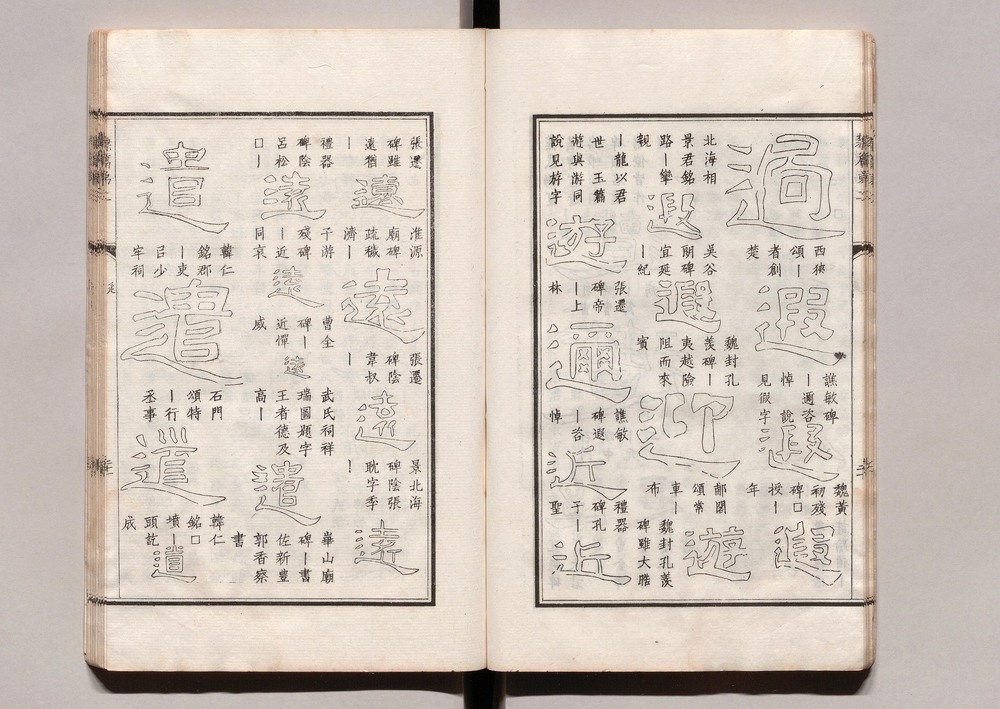 過
西狹
頌丨
者創
楚
遐
譙敏碑
丨邇咨
悼 說
見假字
遐
魏黃
初殘
碑口
授丨
年
遐
北海相
景君銘
路丨攀
親
遐
吳谷
朗碑
宜延
丨紀
遐
魏封孔
羨碑丨
夷越險
阻而來
賓
迎
郙閣
頌常
車丨
布
遊
魏封孔羨
碑雖大皓
丨龍以君
世 玉篇
遊與游同
說見斿字
遊
張遷
碑帝
丨上
林
邇
譙敏
碑遐
丨咨
悼
近
禮器
碑孔
子丨
聖
近
張遷
碑雖
遠猶
丨
遠
淮源
廟碑
疏穢
濟丨
遠
張遷
碑陰
韋叔
丨
遠
景北海
碑陰張
耽字季
丨
遠
禮器
碑陰
呂松
口丨
遠
子游
殘碑
丨近
同哀
遠
曹全
碑丨
近憚
威
遠
武氏祠祥
瑞圖題字
王者德及
高丨
遣
華山廟
碑丨書
佐新豐
郭香察
書
遣
韓仁
銘郡
丨吏
召少
牢祠
遣
石門
頌特
丨行
丞事
遣
韓仁
銘口
墳丨
頭訖
成
遺